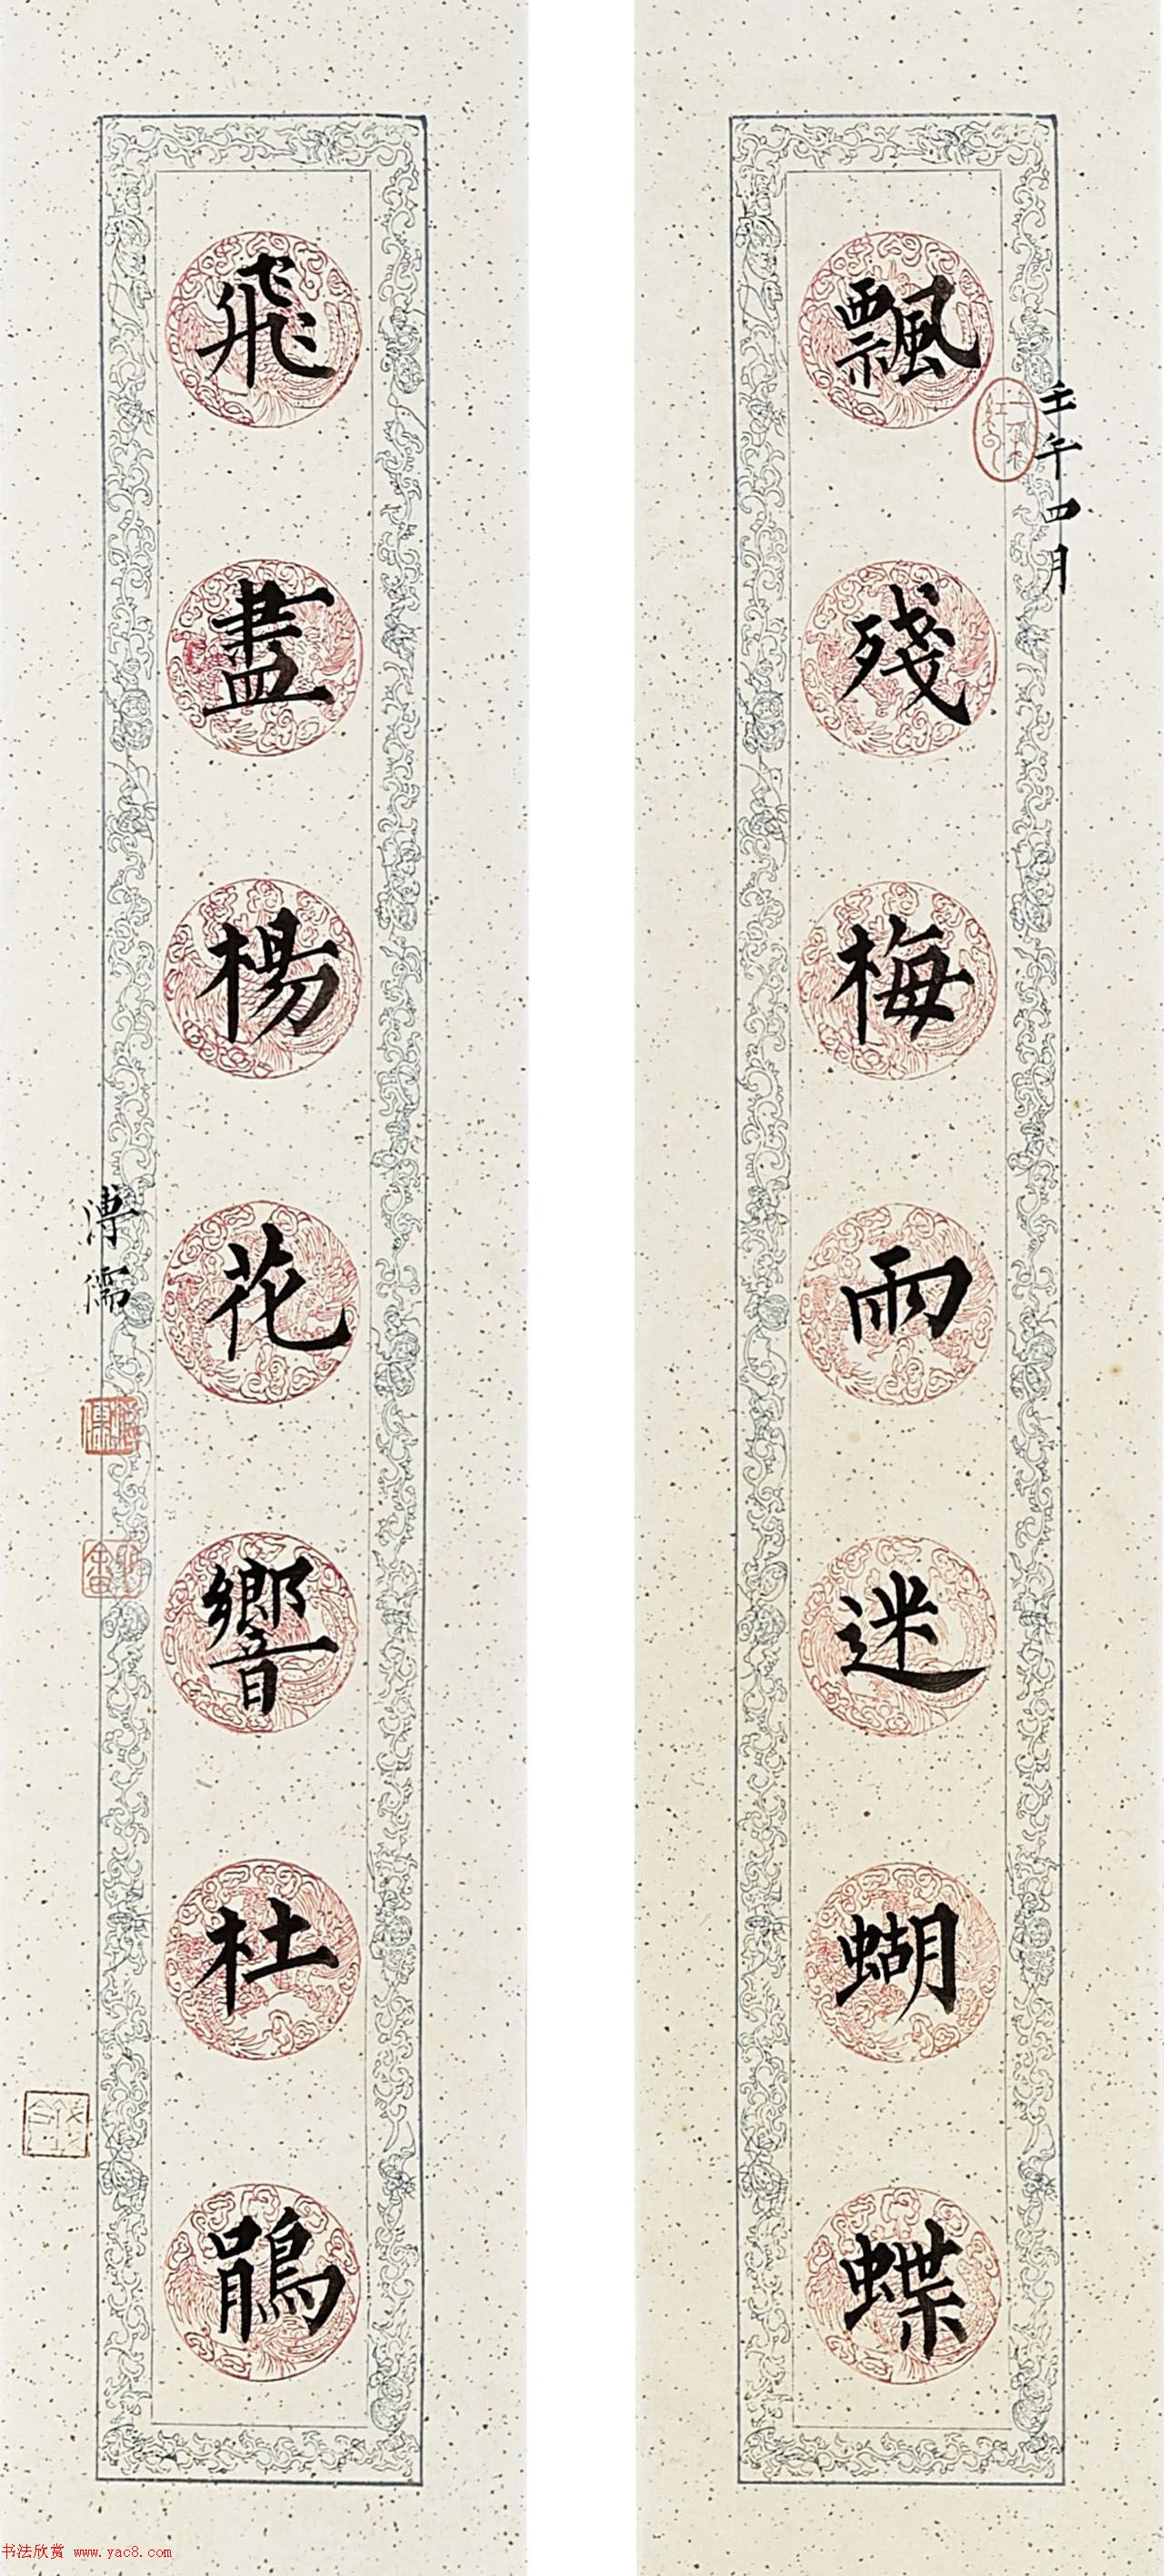 壬午四月
飄殘梅雨迷蝴蝶
飛盡楊花響杜鵑
溥儒
书法欣赏 www.yac8.com